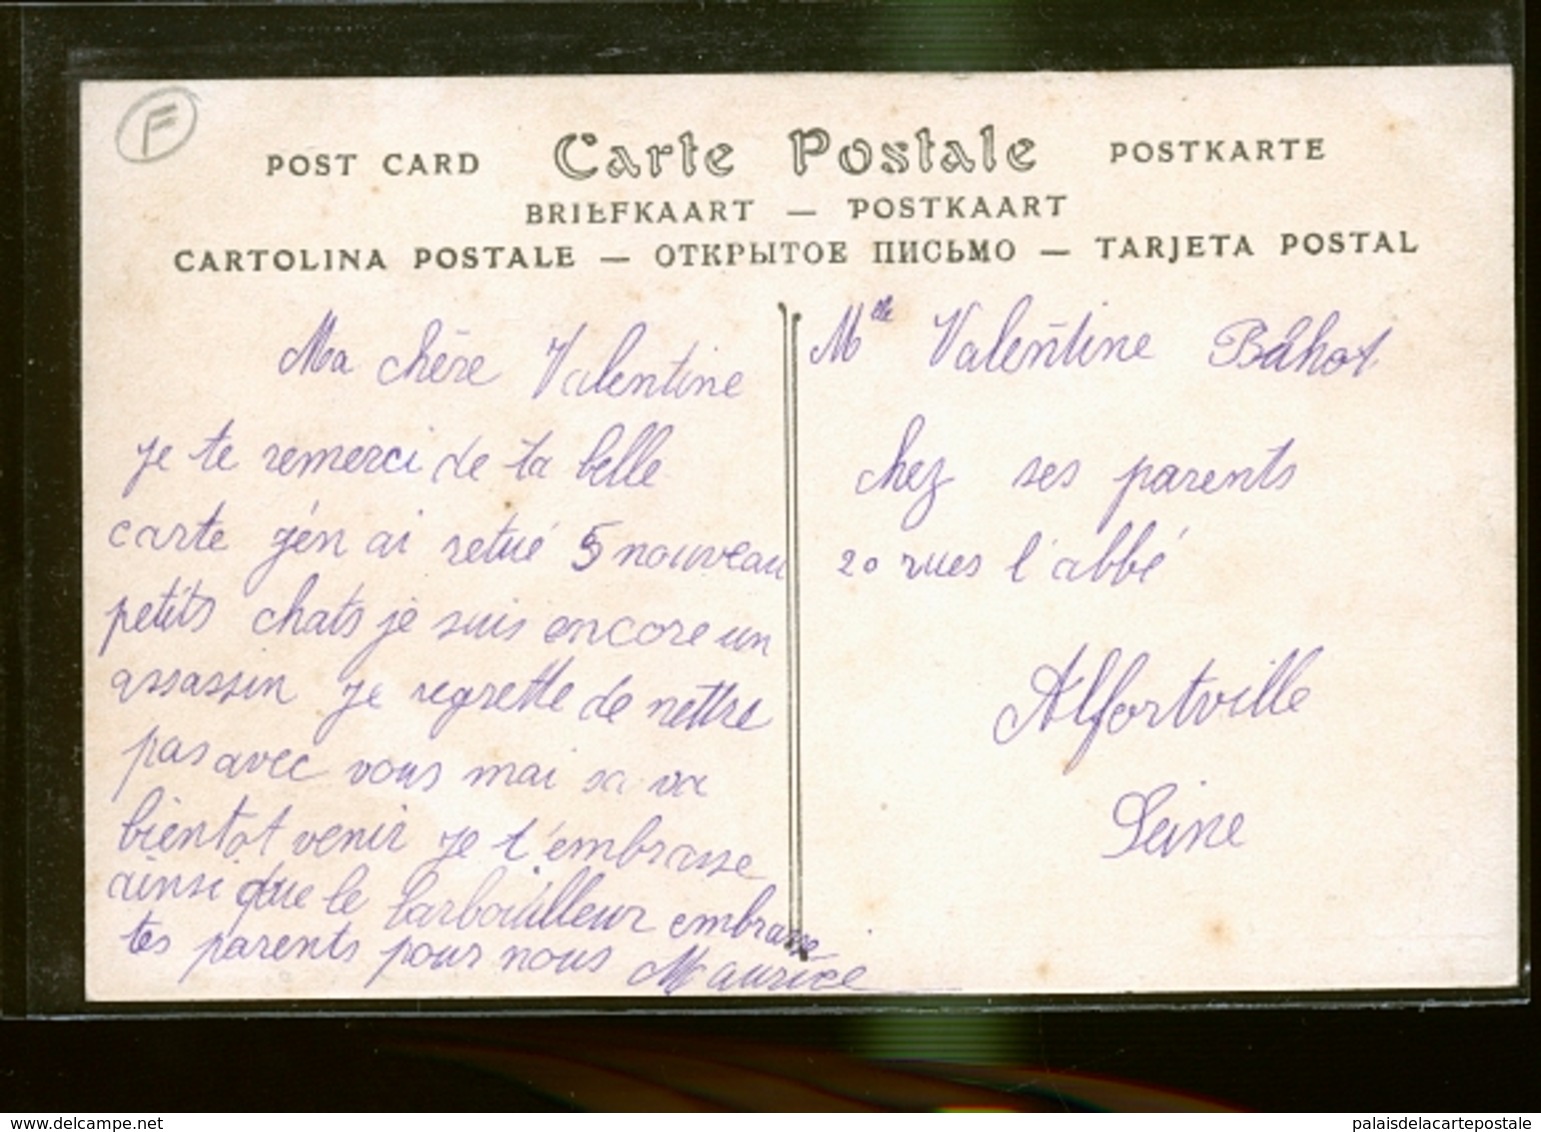 F
POST CARD Carte Postale POSTKARTE
BRIEFKAART — POSTKAART
CARTOLINA POSTALE — ОТКРЫТОЕ ПИСЬМО — TARJETA POSTAL
Ma chère Valentine
je te remerci de ta belle
carte j'én ai retué 5 nouveau
petits chats je suis encore un
assassin je regrette de nettre
pas avec vous mai sa va
bientot venir je t'embrasse
ainsi que le barbouilleur embrasse
tes parents pour nous Maurice
Mlle Valentine Bahot
chez ses parents
20 rues l'abbé
Alfortville
Seine
www.delcampe.net
palaisdelacartepostale